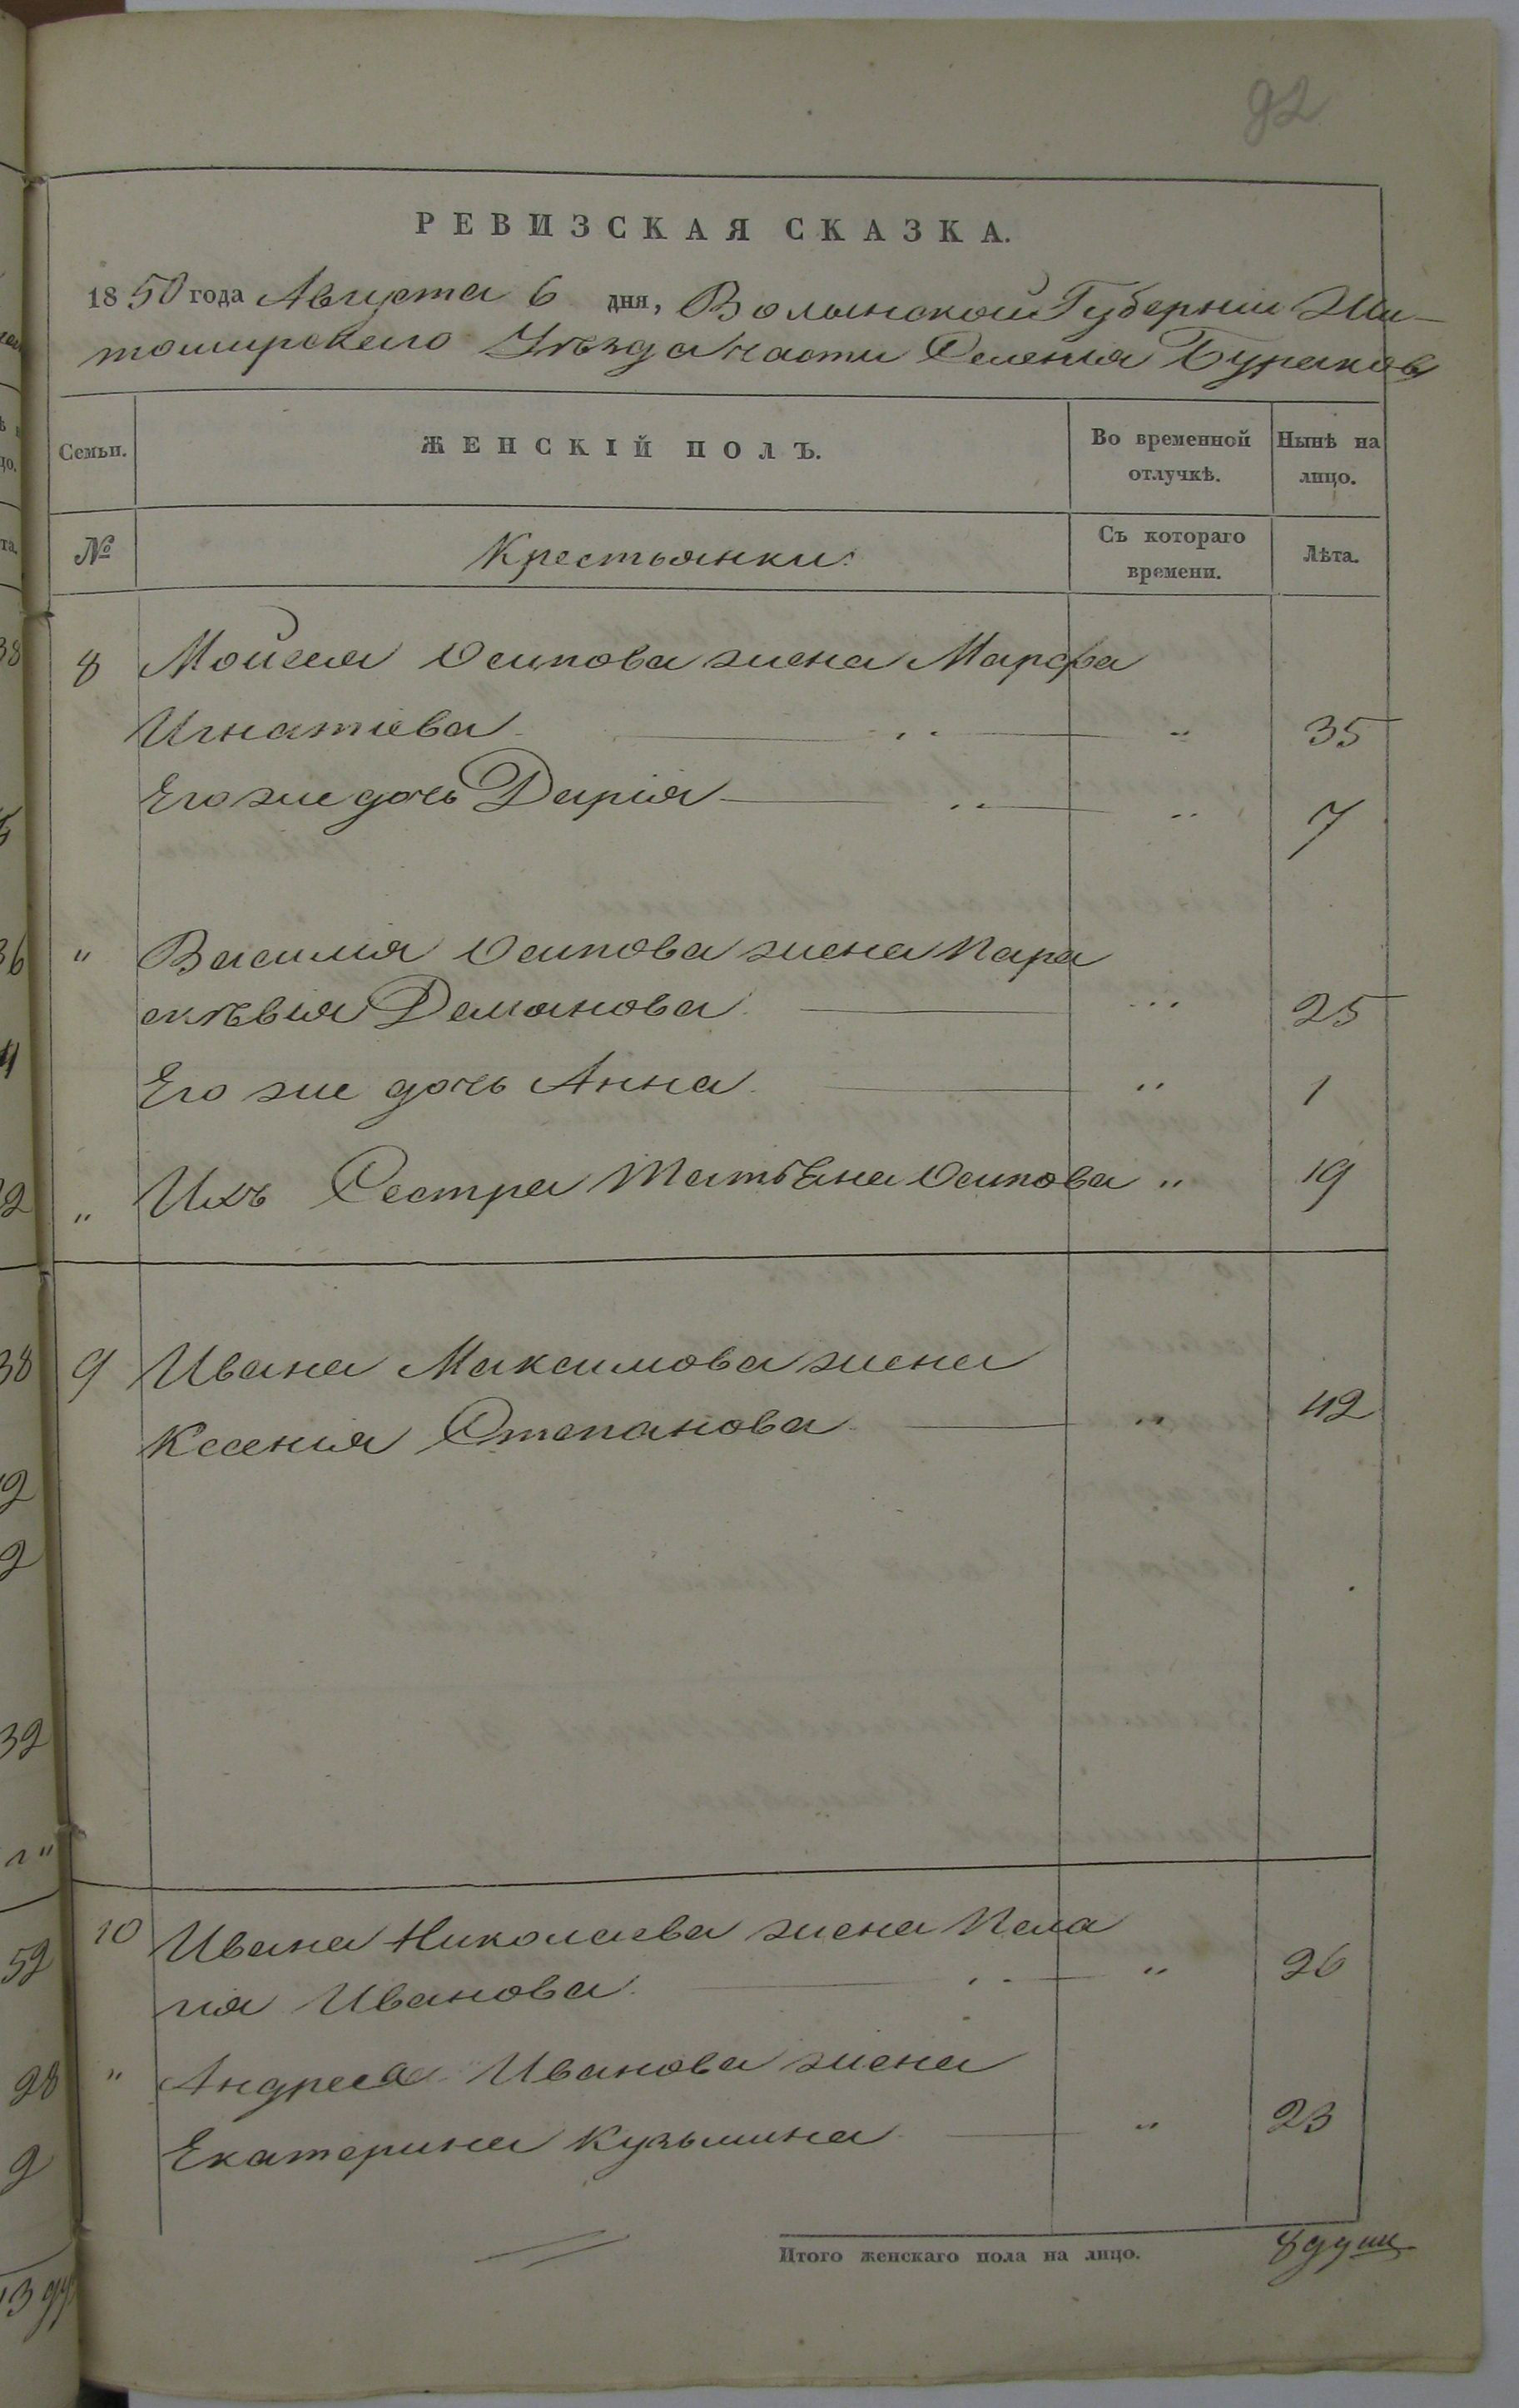 92
РЕВИЗСКАЯ СКАЗКА.
1850 года Августа 6 дня, Волынской Губерніи Жи-
томирскаго Уѣзда части Селенія Бураков
Семьи. ЖЕНСКІЙ ПОЛЪ. Во временной отлучкѣ. Нынѣ на лицо.
№ Крестьянки: Съ котораго времени. Лѣта.
8 Мойсея Осипова жена Марфа
Игнатіева " " 35
Его же дочь Дарія " " 7
" Василія Осипова жена Пара
скѣвія Демянова " 25
Его же дочь Анна " 1
" Ихъ Сестра Татьяна Осипова " 19
9 Ивана Максимова жена
Ксенія Степанова " 42
10 Ивана Николаева жена Пела
гія Иванова " " 26
" Андрея Иванова жена
Екатерина Кузьмина " 23
Итого женскаго пола на лицо. 8 души